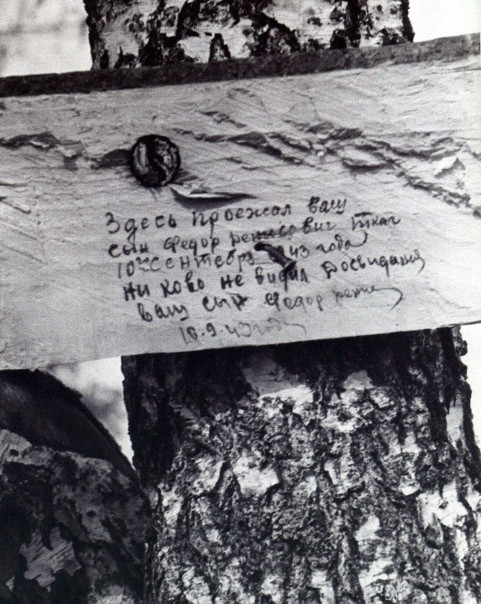 Здесь проежал ваш
сын Федор Денисович Ткач
10го Сентября 43 года
ни ково не видил Досвидания
ваш сын Федор
10.9.43 году